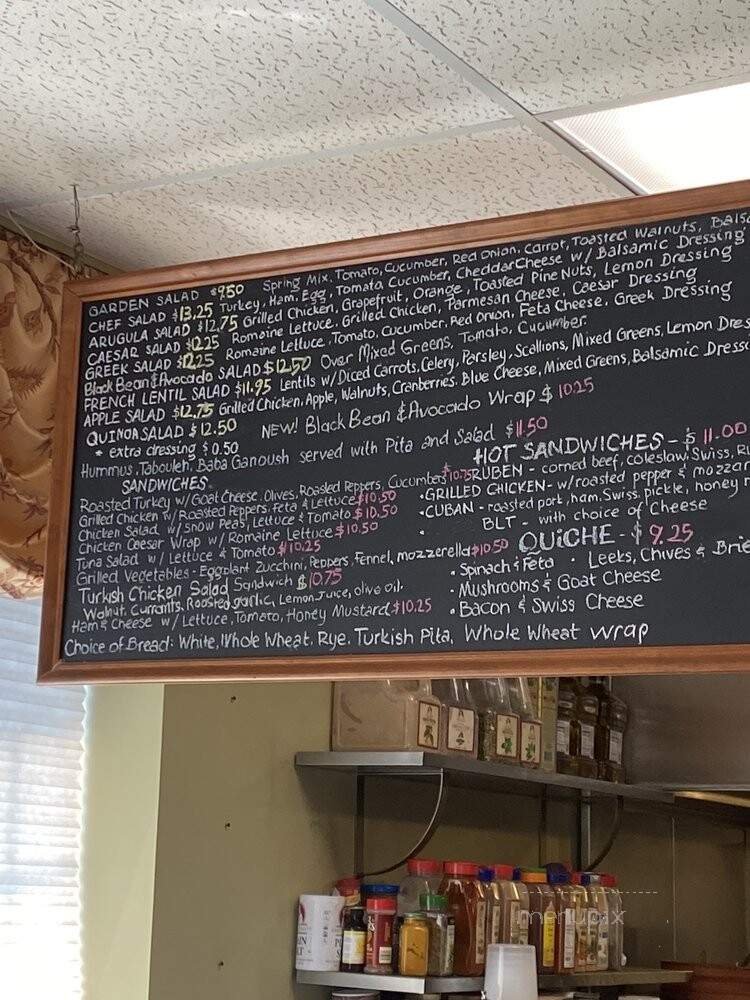 GARDEN SALAD $9.50 Spring Mix, Tomato, Cucumber, Red Onion, Carrot, Toasted Walnuts,
CHEF SALAD $13.25 Turkey, Ham, Egg, Tomata Cucumber, Cheddar Cheese w/ Balsamic Dressing
ARUGULA SALAD $12.75 Grilled Chicken, Grapefruit, Orange, Toasted Pine Nuts, Lemon Dressing
CAESAR SALAD $12.25 Romaine Lettuce, Grilled Chicken, Parmesan Cheese, Caesar Dressing
GREEK SALAD $12.25 Romaine Lettuce, Tomato, Cucumber, Red Onion, Feta Cheese, Greek Dressing
Black Bean & Avocado SALAD $12.50 Over Mixed Greens, Tomato, Cucumber
FRENCH LENTIL SALAD $11.95 Lentils w/ Diced Carrots, Celery, Parsley, Scallions, Mixed Greens, Lemon
APPLE SALAD $12.75 Grilled Chicken, Apple, Walnuts, Cranberries, Blue Cheese, Mixed Greens, Balsamic
QUINOA SALAD $12.50 NEW! Black Bean & Avocado Wrap $10.25
* extra dressing $0.50
Hummus, Tabouleh, Baba Ganoush served with Pita and Salad $11.50
SANDWICHES
Roasted Turkey w/ Goat Cheese, Olives, Roasted Peppers, Cucumbers $10.75
Grilled Chicken w/ Roasted Peppers, Feta & Lettuce $10.50
Chicken Salad w/ Snow Peas, Lettuce & Tomato $10.50
Chicken Caesar Wrap w/ Romaine Lettuce $10.50
Tuna Salad w/ Lettuce & Tomato $10.25
Grilled Vegetables - Eggplant Zucchini, Peppers, Fennel, mozzerella $10.50
Turkish Chicken Salad Sandwich $10.75
Walnut, Currants, Roasted garlic, Lemon Juice, olive oil.
Ham & Cheese w/ Lettuce, Tomato, Honey Mustard $10.25
HOT SANDWICHES - $11.00
RUBEN - corned beef, coleslaw, Swiss,
• GRILLED CHICKEN - w/ roasted pepper &
• CUBAN - roasted pork, ham, Swiss, pickle, honey
• BLT - with choice of Cheese
QUICHE - $9.25
• Spinach & Feta • Leeks, Chives & Brie
• Mushrooms & Goat Cheese
• Bacon & Swiss Cheese
Choice of Bread: White, Whole Wheat, Rye, Turkish Pita, Whole Wheat wrap
menupix